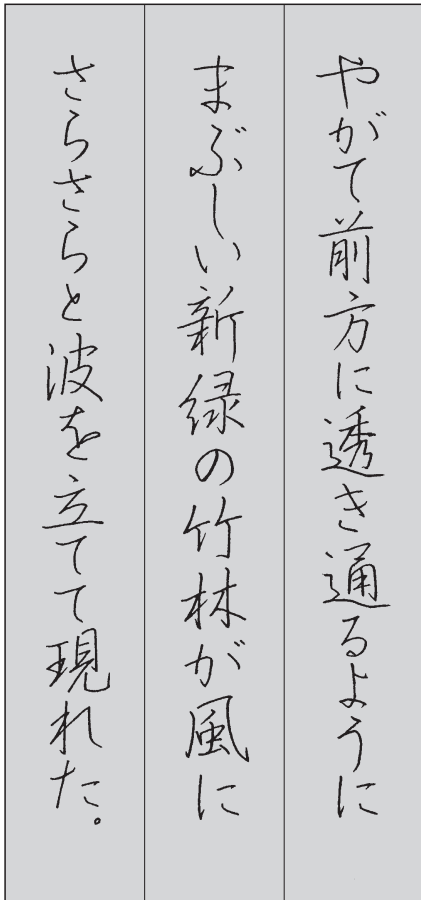 やがて前方に透き通るように
まぶしい新緑の竹林が風に
さらさらと波を立てて現れた。